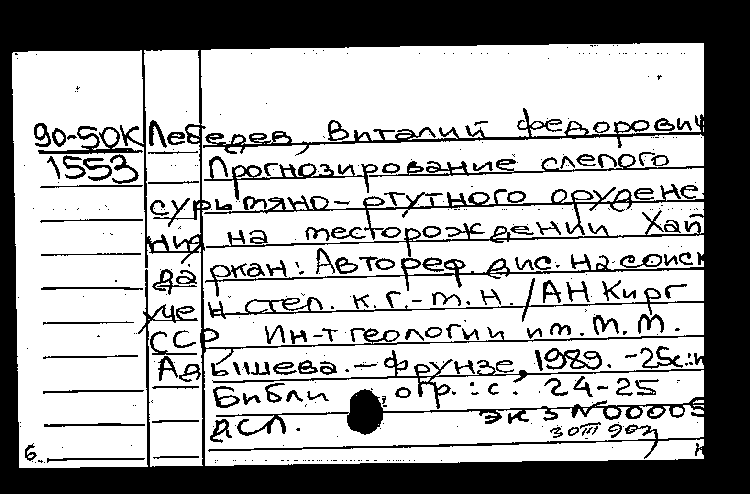 90-50К Лебедев, Виталий Федорович
1553 Прогнозирование слепого
сурьмяно-ртутного орудене-
ния на месторождении Хай
даркан: Автореф. дис. на соиск
учен степ. к. г.-м. н. / АН Кирг
ССР, Ин-т геологии им. М. М.
Адышева. — Фрунзе, 1989. - 25с.:и
Библиогр.: с. 24-25
ДСП. экз N 00005
30 III 90г
б.